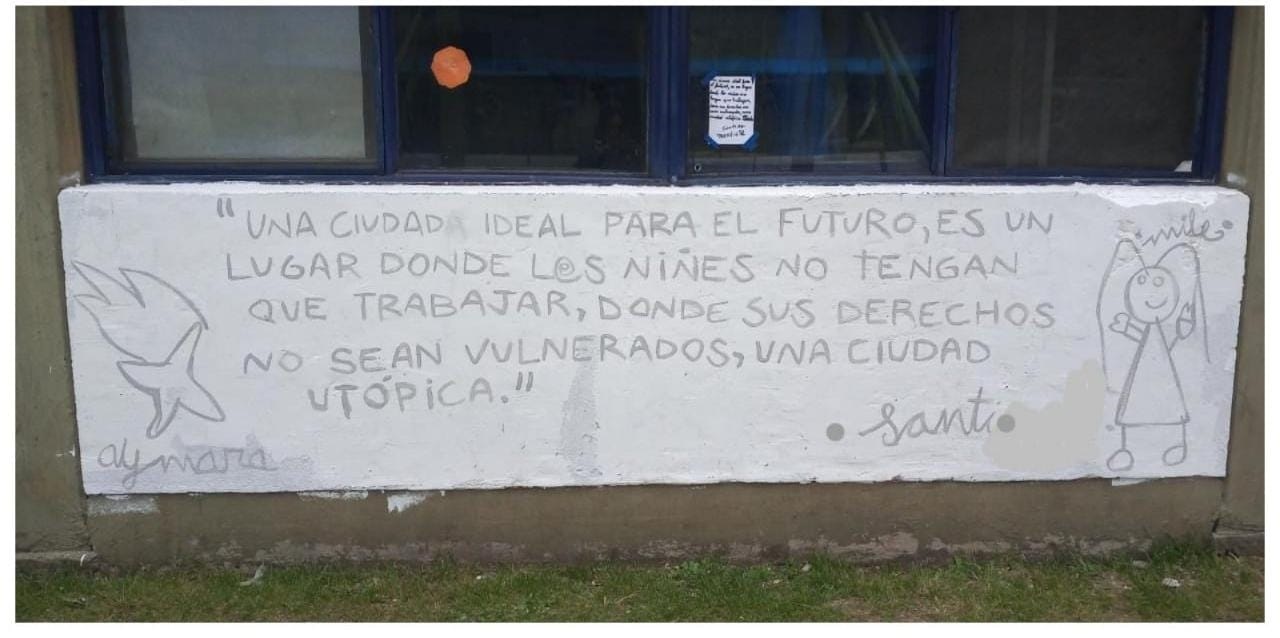 "UNA CIUDAD IDEAL PARA EL FUTURO, ES UN
LUGAR DONDE L@S NIÑES NO TENGAN
QUE TRABAJAR, DONDE SUS DERECHOS
NO SEAN VULNERADOS, UNA CIUDAD
UTÓPICA."
• santi •
aymara
mile